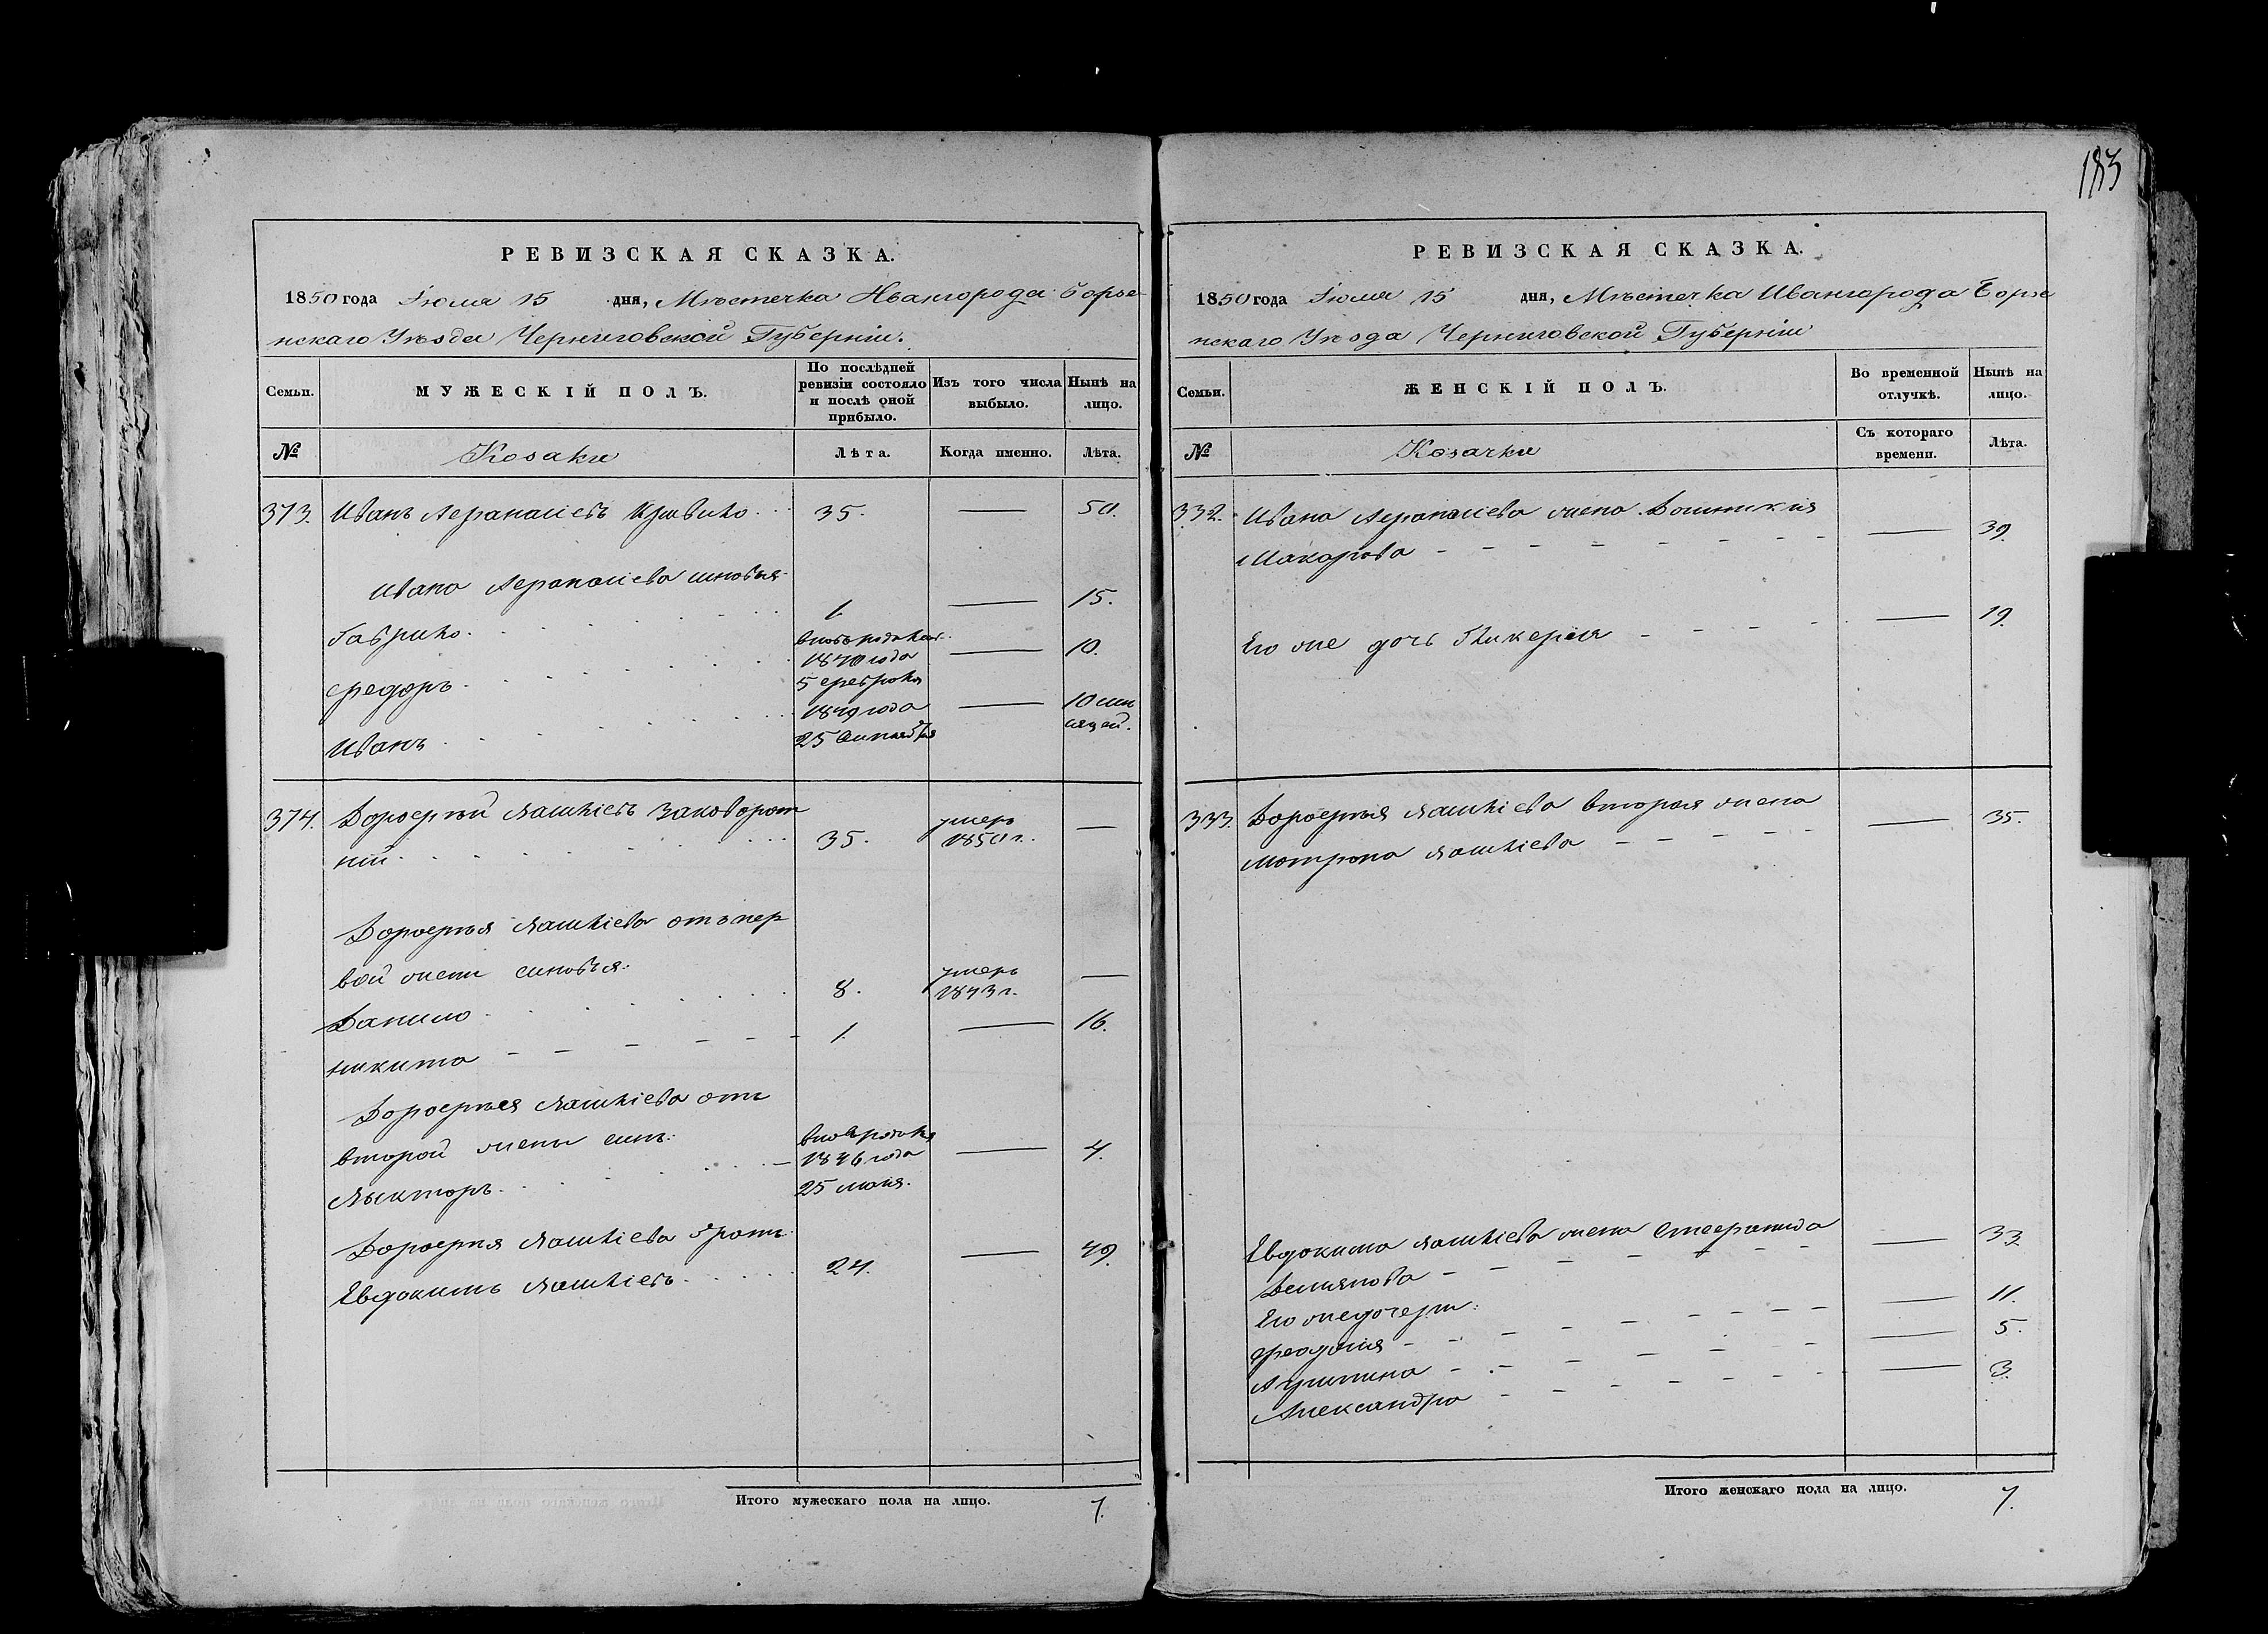 183
РЕВИЗСКАЯ СКАЗКА.
1850 года Іюля 15 дня, Мѣстечка Ивангорода Борзе-
нскаго Уѣзда Черниговской Губерніи.
Семьи. МУЖЕСКІЙ ПОЛЪ. По послѣдней ревизіи состояло и послѣ оной прибыло. Изъ того числа выбыло. Нынѣ на лицо.
№ Козаки Лѣта. Когда именно. Лѣта.
373. Иванъ Афанасіевъ 35. — 50.
Ивана Афанасіева сыновья
Гаврило 1. — 15.
Федоръ вновь рожден. 1840 года 5 февраля — 10.
Иванъ 1849 года 25 — 10 мѣсяцей.
374. Дорофѣй Заководорот
ній 35. умеръ 1850 г. —
Дорофѣя отъ пер
вой жены сыновья:
Данило 8. умеръ 1843 г. —
Никита 1. — 16.
Дорофѣя отъ
второй жены сынъ:
вновь рожден 1846 года 25 июня. — 4.
Дорофѣя братъ
Евдокимъ 24. — 49.
Итого мужескаго пола на лицо. 7.
РЕВИЗСКАЯ СКАЗКА.
1850 года Іюля 15 дня, Мѣстечка Ивангорода Борзе
нскаго Уѣзда Черниговской Губерніи
Семьи. ЖЕНСКІЙ ПОЛЪ. Во временной отлучкѣ. Нынѣ на лицо.
№ Козачки Съ котораго времени. Лѣта.
332. Ивана Афанасіева жена Домникія
Макарова — 39.
Его же дочь Гликерія — 19.
333. Дорофѣя вторая жена
Мотрона — 35.
Евдокима жена Стефанида
Демянова — 33.
Его же дочери:
Феодосія — 11.
Агрипина — 5.
Александра — 3.
Итого женскаго пола на лицо. 7.